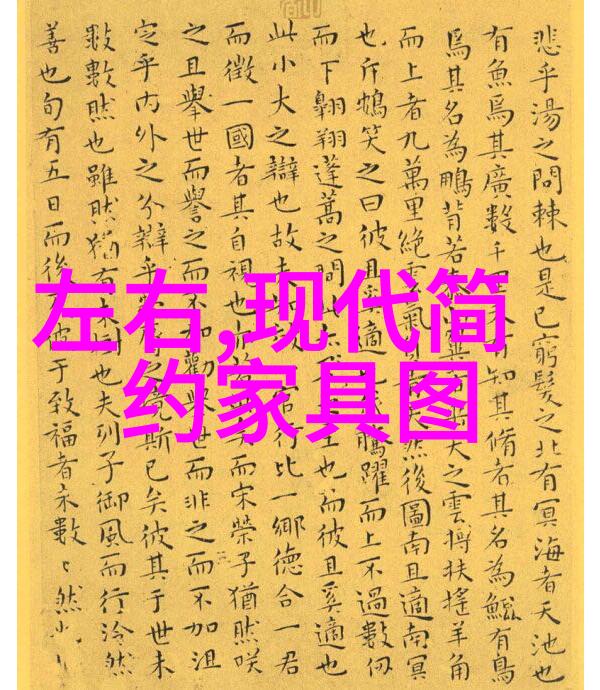 悲乎湯之問棘也是已窮髮之北有冥海者天池也
有魚焉其廣數千有知其脩者其名為鯤有鳥
焉其名為鵬背若天之雲摶扶搖羊角
而上者九萬里絕雲氣天然後圖南且適南冥
也斥鴳笑之曰彼且奚適也騰躍而上不過數仞
而下翱翔蓬蒿之間此也而彼且奚適也
此小大之辯也故夫官行比一鄉德合一君
而徵一國者其自視也而宋榮子猶然咲
之且舉世而譽之而不加勸舉世而非之而不加沮
定乎內外之分辯乎斯已矣彼其于世未
數數然也雖然猶有未也夫列子御風而行泠然
善也旬有五日而後彼于致福者未數〻然也
左右,现代简
约家具图